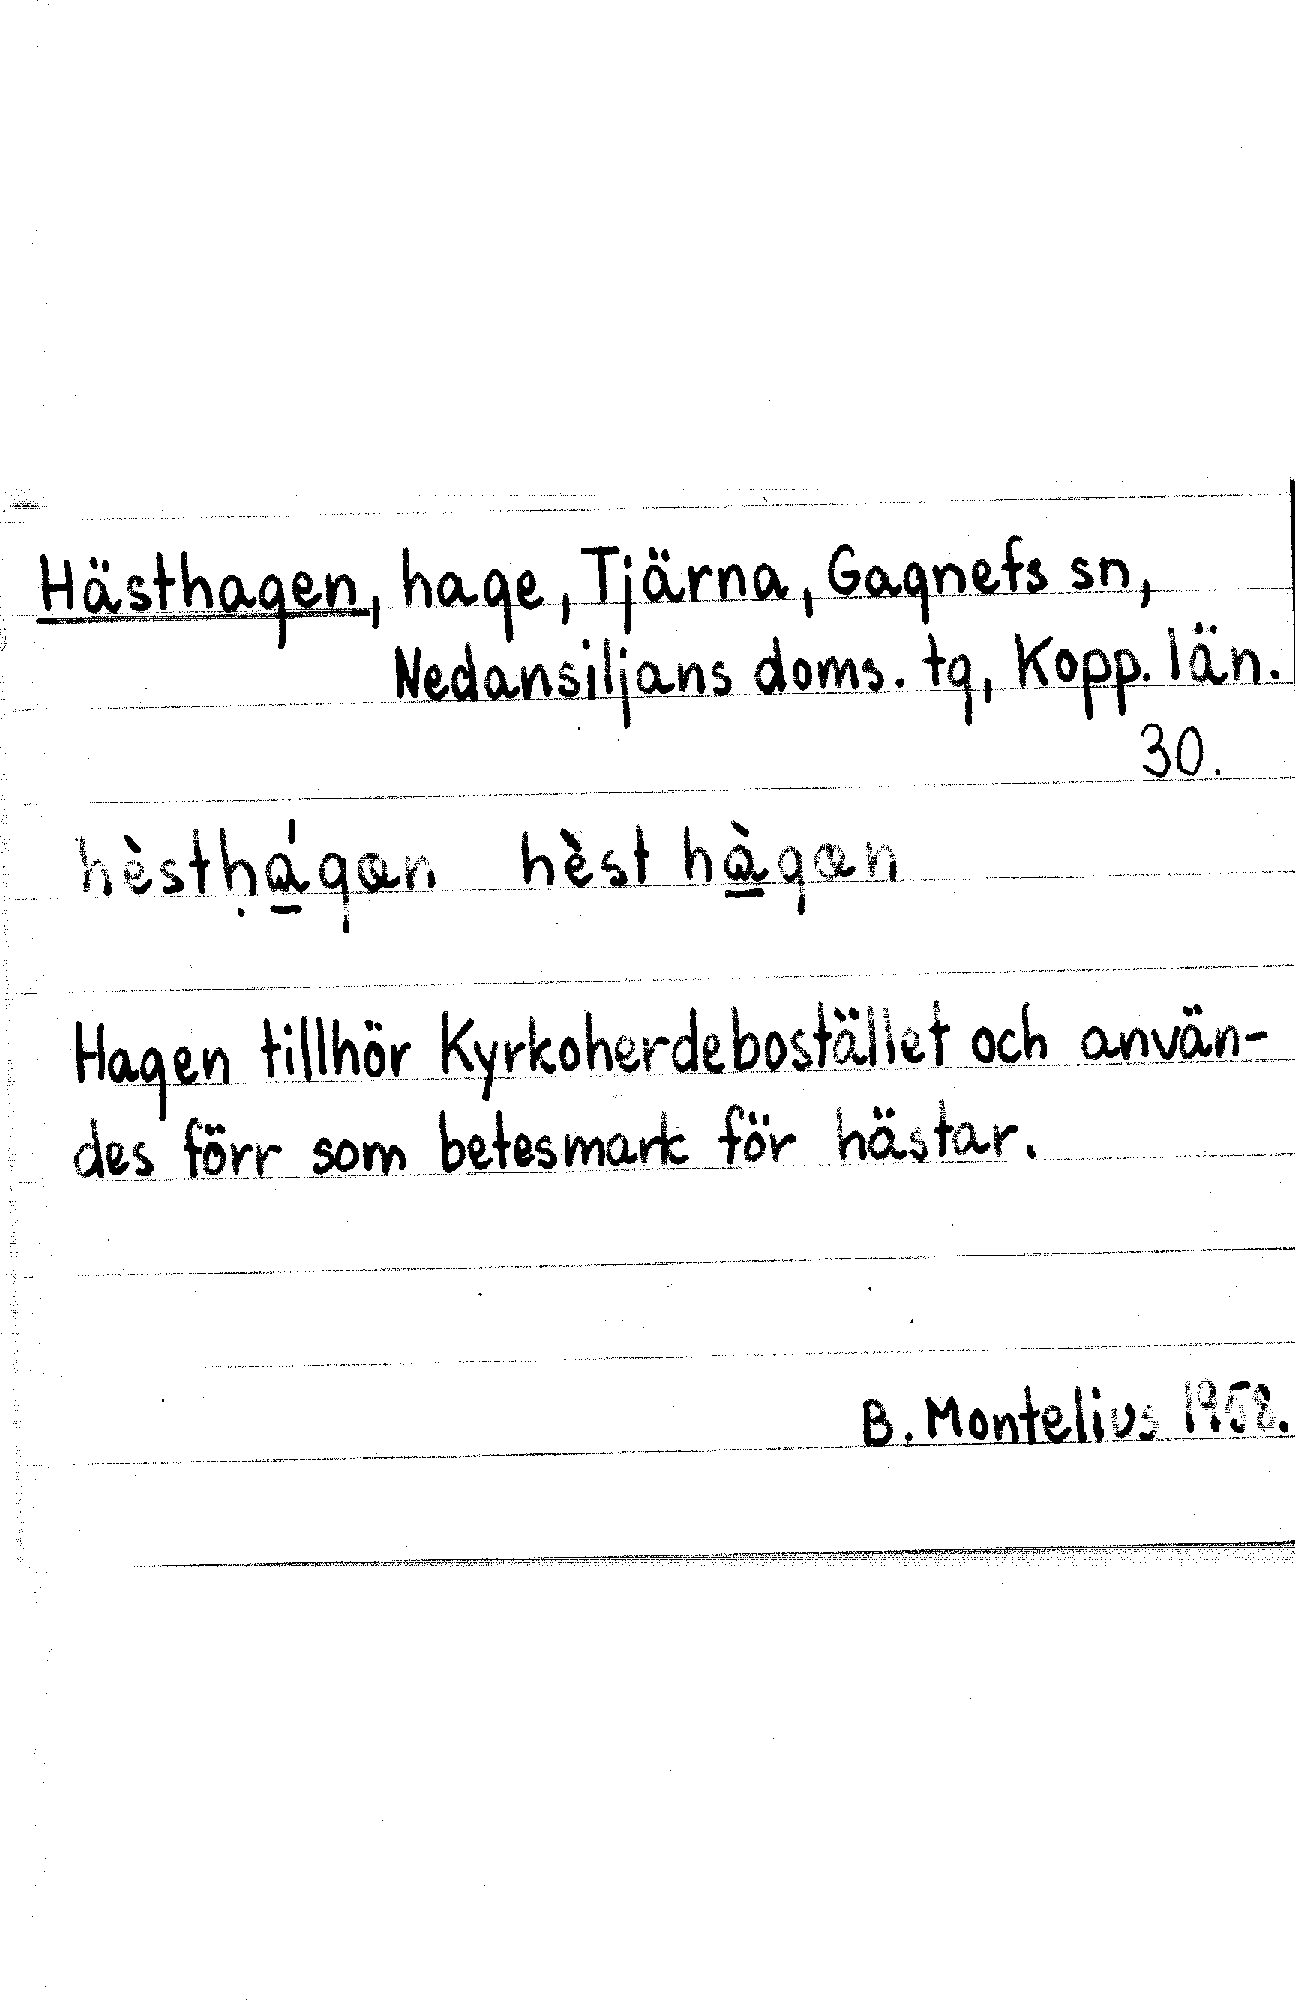 Hästhagen, hage, Tjärna, Gagnefs sn,
Nedansiljans doms. tg, Kopp. län.
30.
hèstḥá̱gœn hèst hà̱gœn
Hagen tillhör Kyrkoherdebostället och använ-
des förr som betesmark för hästar.
B. Montelius 1958.